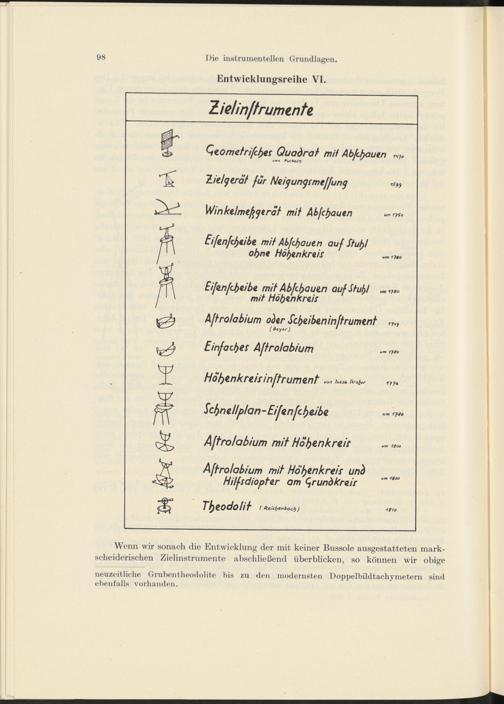 98
Die instrumentellen Grundlagen.
Entwicklungsreihe VI.
Zielinſtrumente
Geometriſches Quadrat mit Abſchauen
Zielgerät für Neigungsmeſſung 1599
Winkelmeßgerät mit Abſchauen um 1750
Eiſenſcheibe mit Abſchauen auf Stuhl
ohne Höhenkreis um 1780
Eiſenſcheibe mit Abſchauen auf Stuhl um 1780
mit Höhenkreis
Aſtrolabium oder Scheibeninſtrument 1749
(Beyer)
Einfaches Aſtrolabium um 1780
Höhenkreisinſtrument von 1774
Schnellplan-Eiſenſcheibe um 1780
Aſtrolabium mit Höhenkreis um 1800
Aſtrolabium mit Höhenkreis und
Hilfsdiopter am Grundkreis um 1800
Theodolit (Reichenbach) 1810
Wenn wir sonach die Entwicklung der mit keiner Bussole ausgestatteten mark-
scheiderischen Zielinstrumente abschließend überblicken, so können wir obige
neuzeitliche Grubentheodolite bis zu den modernsten Doppelbildtachymetern sind
ebenfalls vorhanden.